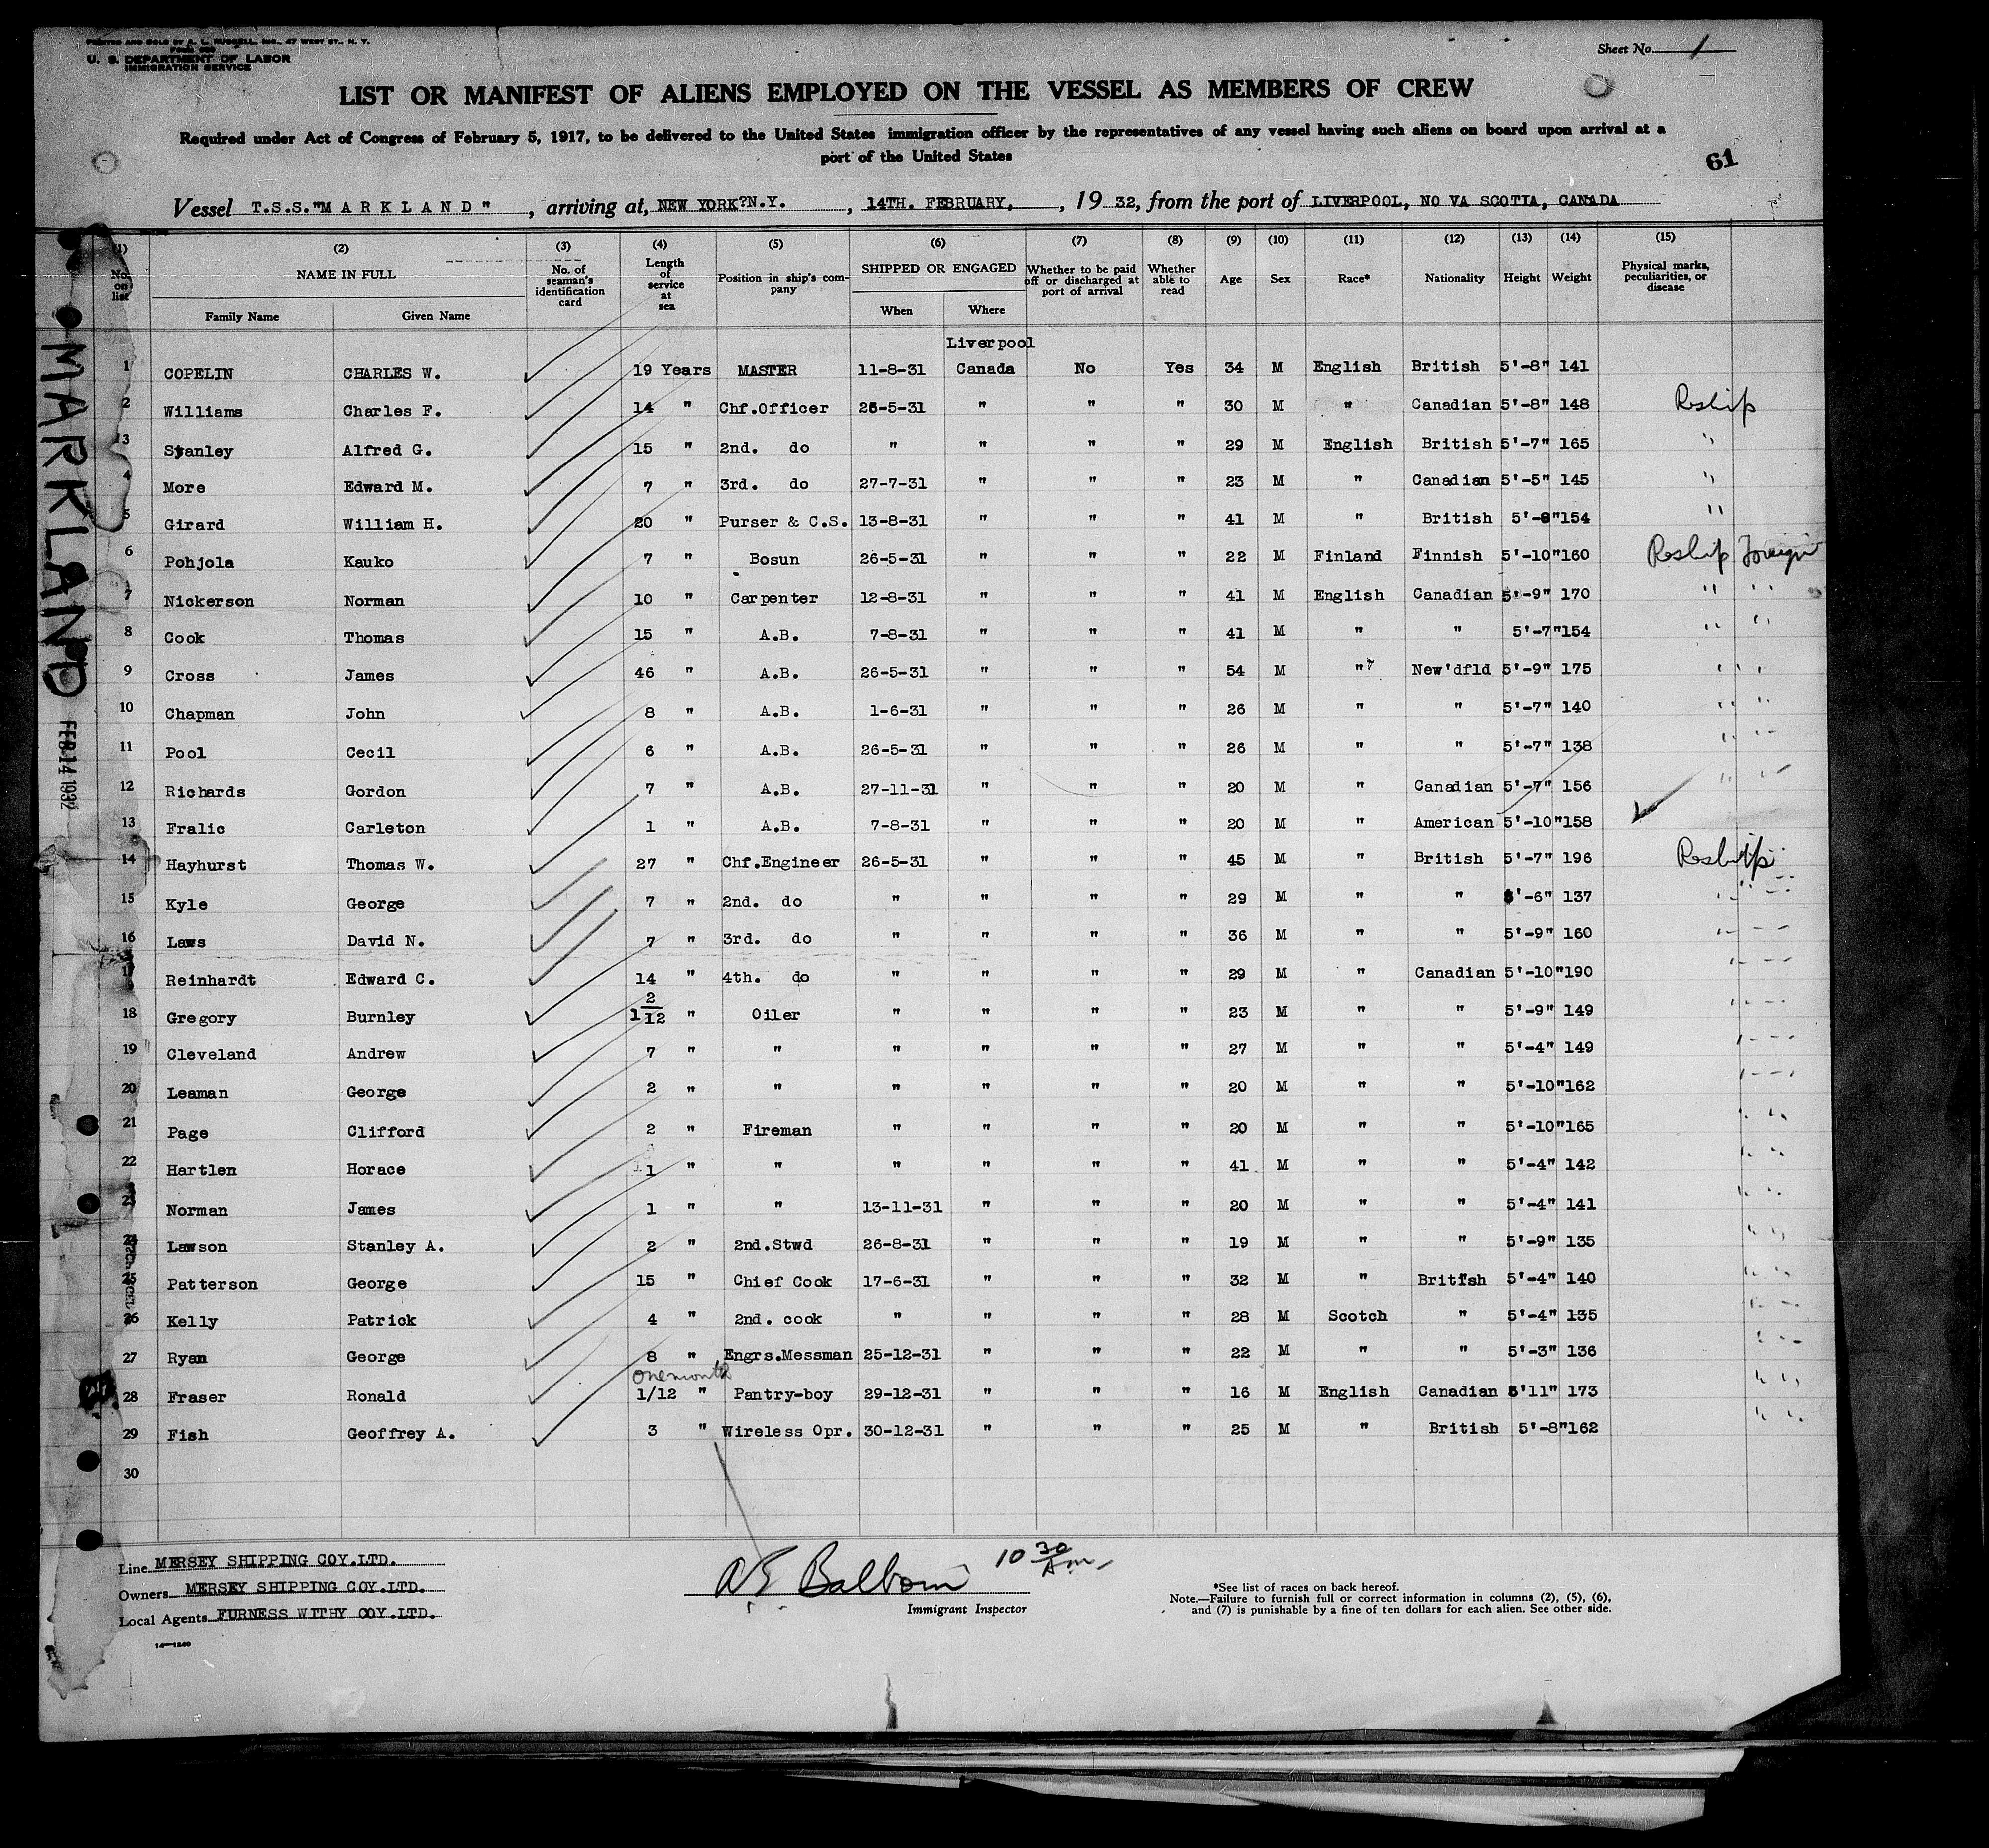 PRINTED AND SOLD BY A. L. RUSSELL, INC., 47 WEST ST., N. Y.
U. S. DEPARTMENT OF LABOR
IMMIGRATION SERVICE
Sheet No. 1
LIST OR MANIFEST OF ALIENS EMPLOYED ON THE VESSEL AS MEMBERS OF CREW
Required under Act of Congress of February 5, 1917, to be delivered to the United States immigration officer by the representatives of any vessel having such aliens on board upon arrival at a
port of the United States
61
Vessel T.S.S."MARKLAND", arriving at, NEW YORK?N.Y. , 14TH. FEBRUARY, , 19 32, from the port of LIVERPOOL, NO VA SCOTIA, CANADA
(1) (2) (3) (4) (5) (6) (7) (8) (9) (10) (11) (12) (13) (14) (15)
No. on list NAME IN FULL Family Name Given Name No. of seaman's identification card Length of service at sea Position in ship's company SHIPPED OR ENGAGED When Where Whether to be paid off or discharged at port of arrival Whether able to read Age Sex Race* Nationality Height Weight Physical marks, peculiarities, or disease
Liverpool
1 COPELIN CHARLES W. 19 Years MASTER 11-8-31 Canada No Yes 34 M English British 5'-8" 141
2 Williams Charles F. 14 " Chf.Officer 26-5-31 " " " 30 M " Canadian 5'-8" 148 Reship
3 Stanley Alfred G. 15 " 2nd. do " " " " 29 M English British 5'-7" 165 "
4 More Edward M. 7 " 3rd. do 27-7-31 " " " 23 M " Canadian 5'-5" 145 "
5 Girard William H. 20 " Purser & C.S. 13-8-31 " " " 41 M " British 5'-8" 154 "
6 Pohjola Kauko 7 " Bosun 26-5-31 " " " 22 M Finland Finnish 5'-10" 160 Reship Foreign
7 Nickerson Norman 10 " Carpenter 12-8-31 " " " 41 M English Canadian 5'-9" 170 " "
8 Cook Thomas 15 " A.B. 7-8-31 " " " 41 M " " 5'-7" 154 " "
9 Cross James 46 " A.B. 26-5-31 " " " 54 M " New'dfld 5'-9" 175 " "
10 Chapman John 8 " A.B. 1-6-31 " " " 26 M " " 5'-7" 140 " "
11 Pool Cecil 6 " A.B. 26-5-31 " " " 26 M " " 5'-7" 138 " "
12 Richards Gordon 7 " A.B. 27-11-31 " " " 20 M " Canadian 5'-7" 156 " "
13 Fralic Carleton 1 " A.B. 7-8-31 " " " 20 M " American 5'-10" 158
14 Hayhurst Thomas W. 27 " Chf.Engineer 26-5-31 " " " 45 M " British 5'-7" 196 Reship
15 Kyle George 7 " 2nd. do " " " " 29 M " " 5'-6" 137 " "
16 Laws David N. 7 " 3rd. do " " " " 36 M " " 5'-9" 160 " "
17 Reinhardt Edward C. 14 " 4th. do " " " " 29 M " Canadian 5'-10" 190 " "
18 Gregory Burnley 1 2/12 " Oiler " " " " 23 M " " 5'-9" 149 " "
19 Cleveland Andrew 7 " " " " " " 27 M " " 5'-4" 149 " "
20 Leaman George 2 " " " " " " 20 M " " 5'-10" 162 " "
21 Page Clifford 2 " Fireman " " " " 20 M " " 5'-10" 165 " "
22 Hartlen Horace 1 " " " " " " 41 M " " 5'-4" 142 " "
23 Norman James 1 " " 13-11-31 " " " 20 M " " 5'-4" 141 " "
24 Lawson Stanley A. 2 " 2nd.Stwd 26-8-31 " " " 19 M " " 5'-9" 135 " "
25 Patterson George 15 " Chief Cook 17-6-31 " " " 32 M " British 5'-4" 140 " "
26 Kelly Patrick 4 " 2nd. cook " " " " 28 M Scotch " 5'-4" 135 " "
27 Ryan George 8 " Engrs.Messman 25-12-31 " " " 22 M " " 5'-3" 136 " "
one month
28 Fraser Ronald 1/12 " Pantry-boy 29-12-31 " " " 16 M English Canadian 5'11" 173 " "
29 Fish Geoffrey A. 3 " Wireless Opr. 30-12-31 " " " 25 M " British 5'-8" 162 " "
30
MARKLAND
FEB 14 1932
Line MERSEY SHIPPING COY.LTD.
Owners MERSEY SHIPPING COY.LTD.
Local Agents FURNESS WITHY COY.LTD.
14—1240
10 30 Am
Immigrant Inspector
*See list of races on back hereof.
Note.—Failure to furnish full or correct information in columns (2), (5), (6),
and (7) is punishable by a fine of ten dollars for each alien. See other side.